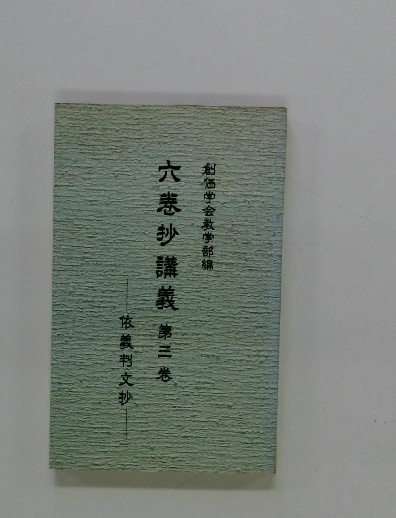 創価学会教学部編
六巻抄講義 第三巻
――依義判文抄――